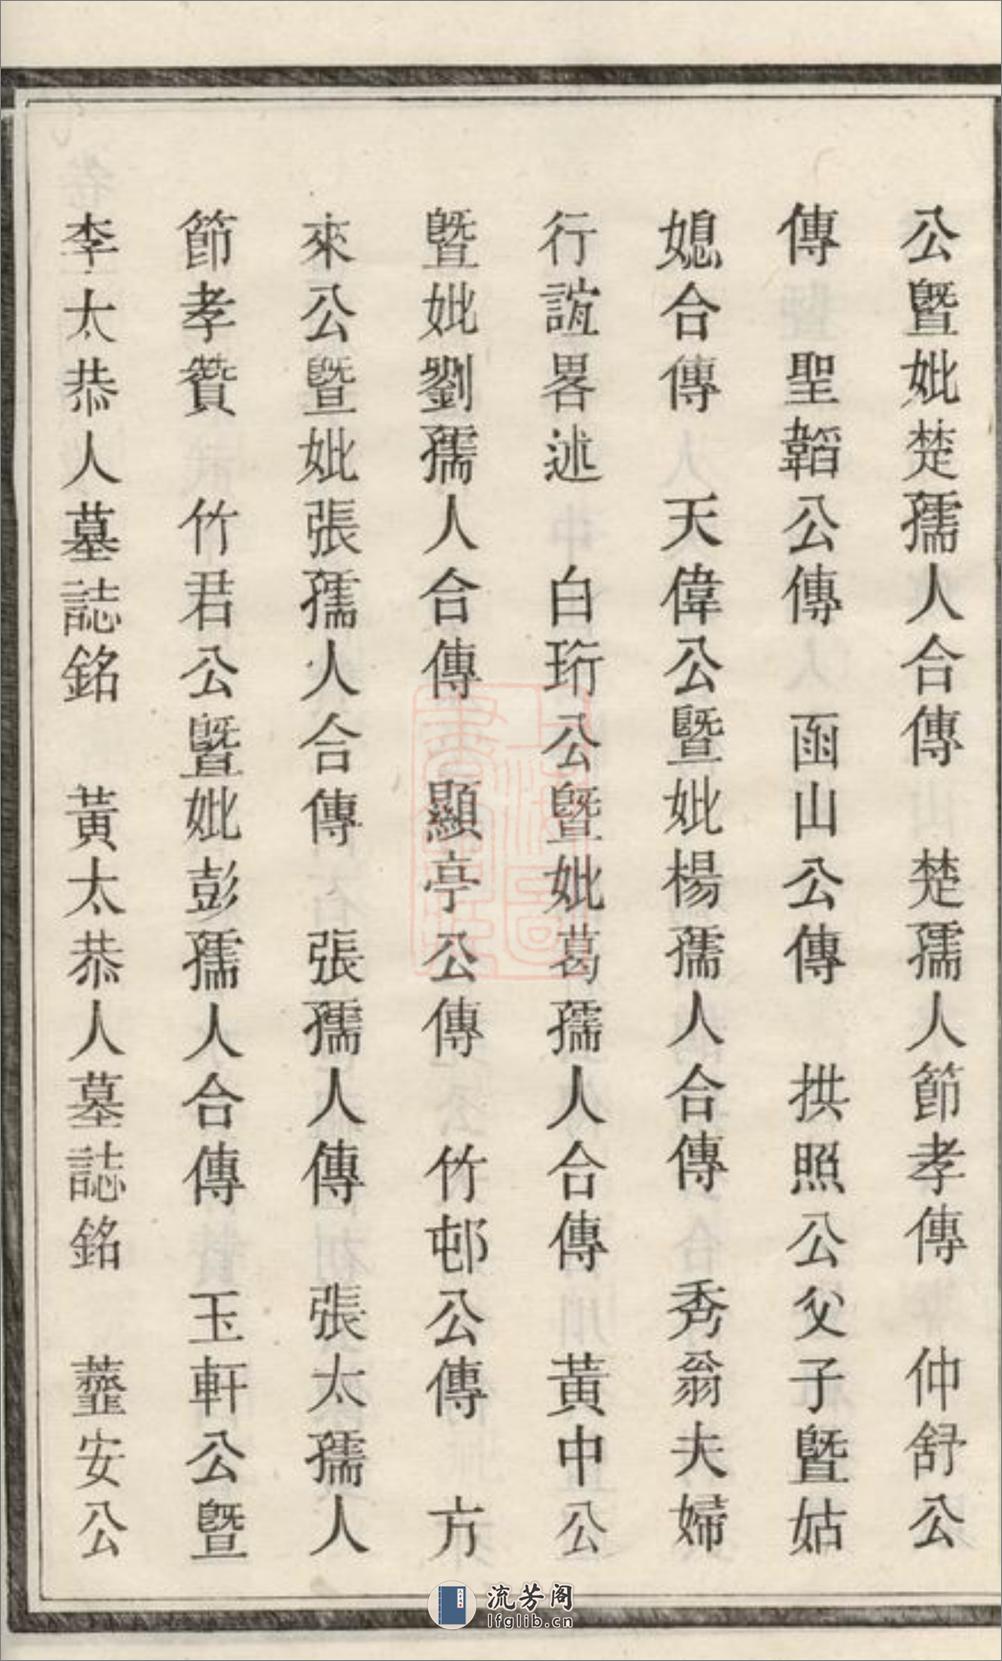 公暨妣楚孺人合傳　楚孺人節孝傳　仲舒公
傳　聖韜公傳　函山公傳　拱照公父子暨姑
媳合傳　天偉公暨妣楊孺人合傳　秀翁夫婦
行誼畧述　白珩公暨妣葛孺人合傳　黃中公
暨妣劉孺人合傳　顯亭公傳　竹邨公傳　方
來公暨妣張孺人合傳　張孺人傳　張太孺人
節孝贊　竹君公暨妣彭孺人合傳　玉軒公暨
李太恭人墓誌銘　黃太恭人墓誌銘　虀安公
流芳阁
lfglib.cn